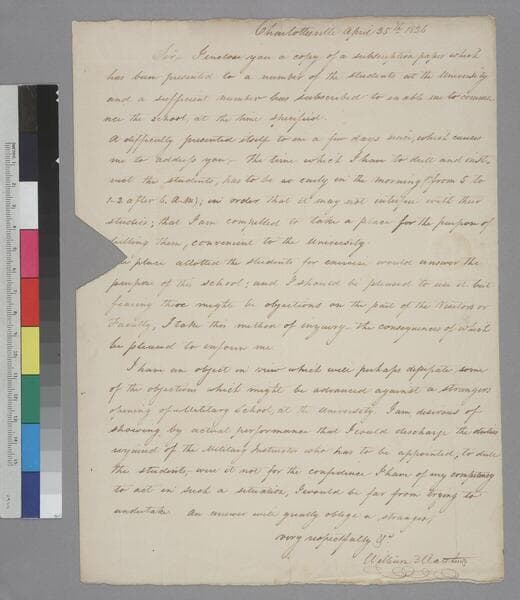 Charlottesville April 25th 1826
Sir, I inclose you a copy of a subscription paper which
has been presented to a number of the students at the University
and a sufficient number has subscribed to enable me to comme
nce the school, at the time specified.
A difficulty presented itself to me a few days since, which causes
me to address you. The time which I have to drill and inst-
ruct the students, has to be so early in the morning (from 5 to
1-2 after 6, A.M); in order that it may not interfere with their
studies; that I am compelled to take a place for the purpose of
drilling them, convenient to the University.
place allotted the students for exercise would answer the
purpose of this school; and I should be pleased to use it but
fearing there might be objections on the part of the Visitors or
Faculty, I take this method of enquiry the consequences of which
be pleased to inform me.
I have an object in view which will perhaps dissipate some
of the objections which might be advanced against a strangers
opening of a Military School, at the University. I am desirous of
showing by actual performance that I could discharge the duties
required of the Military Instructor who has to be appointed, to drill
the students, were it not for the confidence I have of my competency
to act in such a situation, I would be far from trying to
undertake. An answer will greatly oblige a stranger,
very respectfully &c
William Matthews